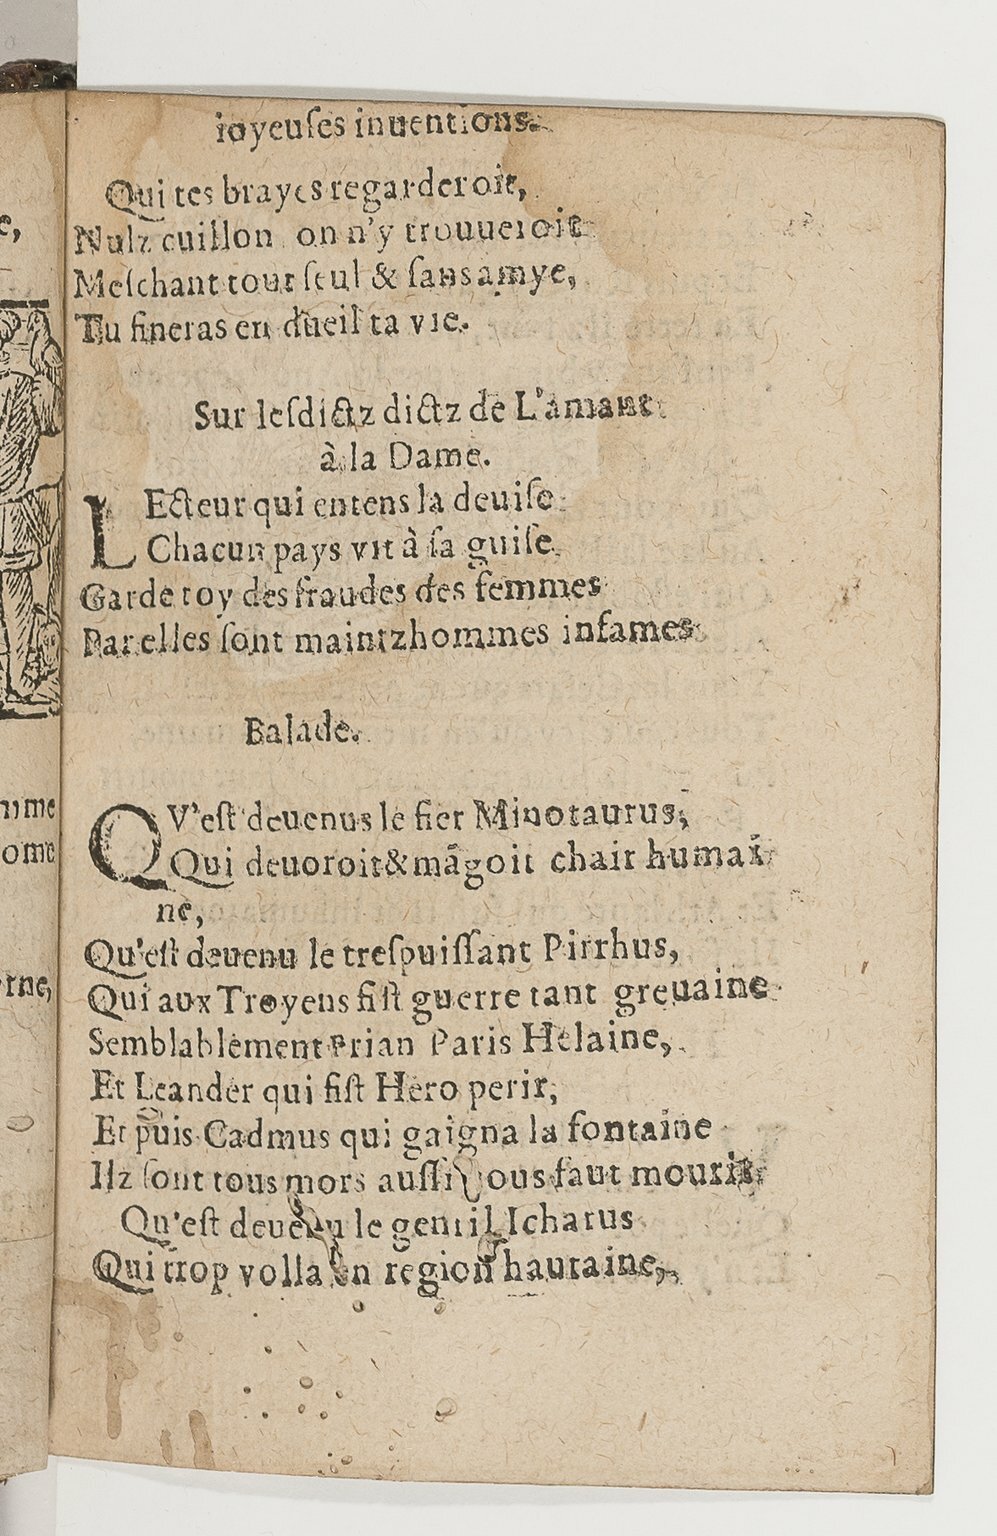 ioyeuſes inuentions.
Qui tes brayes regarderoit,
Nulz cuillon on n'y trouueroit
Meſchant tout ſeul & ſans amye,
Tu fineras en dueil ta vie.
Sur leſdictz dictz de L'amant
à la Dame.
LEcteur qui entens la deuiſe
Chacun pays vit à ſa guiſe.
Garde toy des fraudes des femmes
Par elles ſont maintzhommes infames
Balade.
QV'eſt deuenus le fier Minotaurus,
Qui deuoroit & mãgoit chair humai
ne,
Qu'eſt deuenu le treſpuiſſant Pirrhus,
Qui aux Troyens fiſt guerre tant greuaine
Semblablement Prian Paris Helaine,
Et Leander qui fiſt Hero perir,
Et puis Cadmus qui gaigna la fontaine
Ilz ſont tous mors auſſi vous faut mourir,
Qu'eſt deuenu le gentil Icharus
Qui trop volla en region hautaine,
nme
ome
rne,
e,